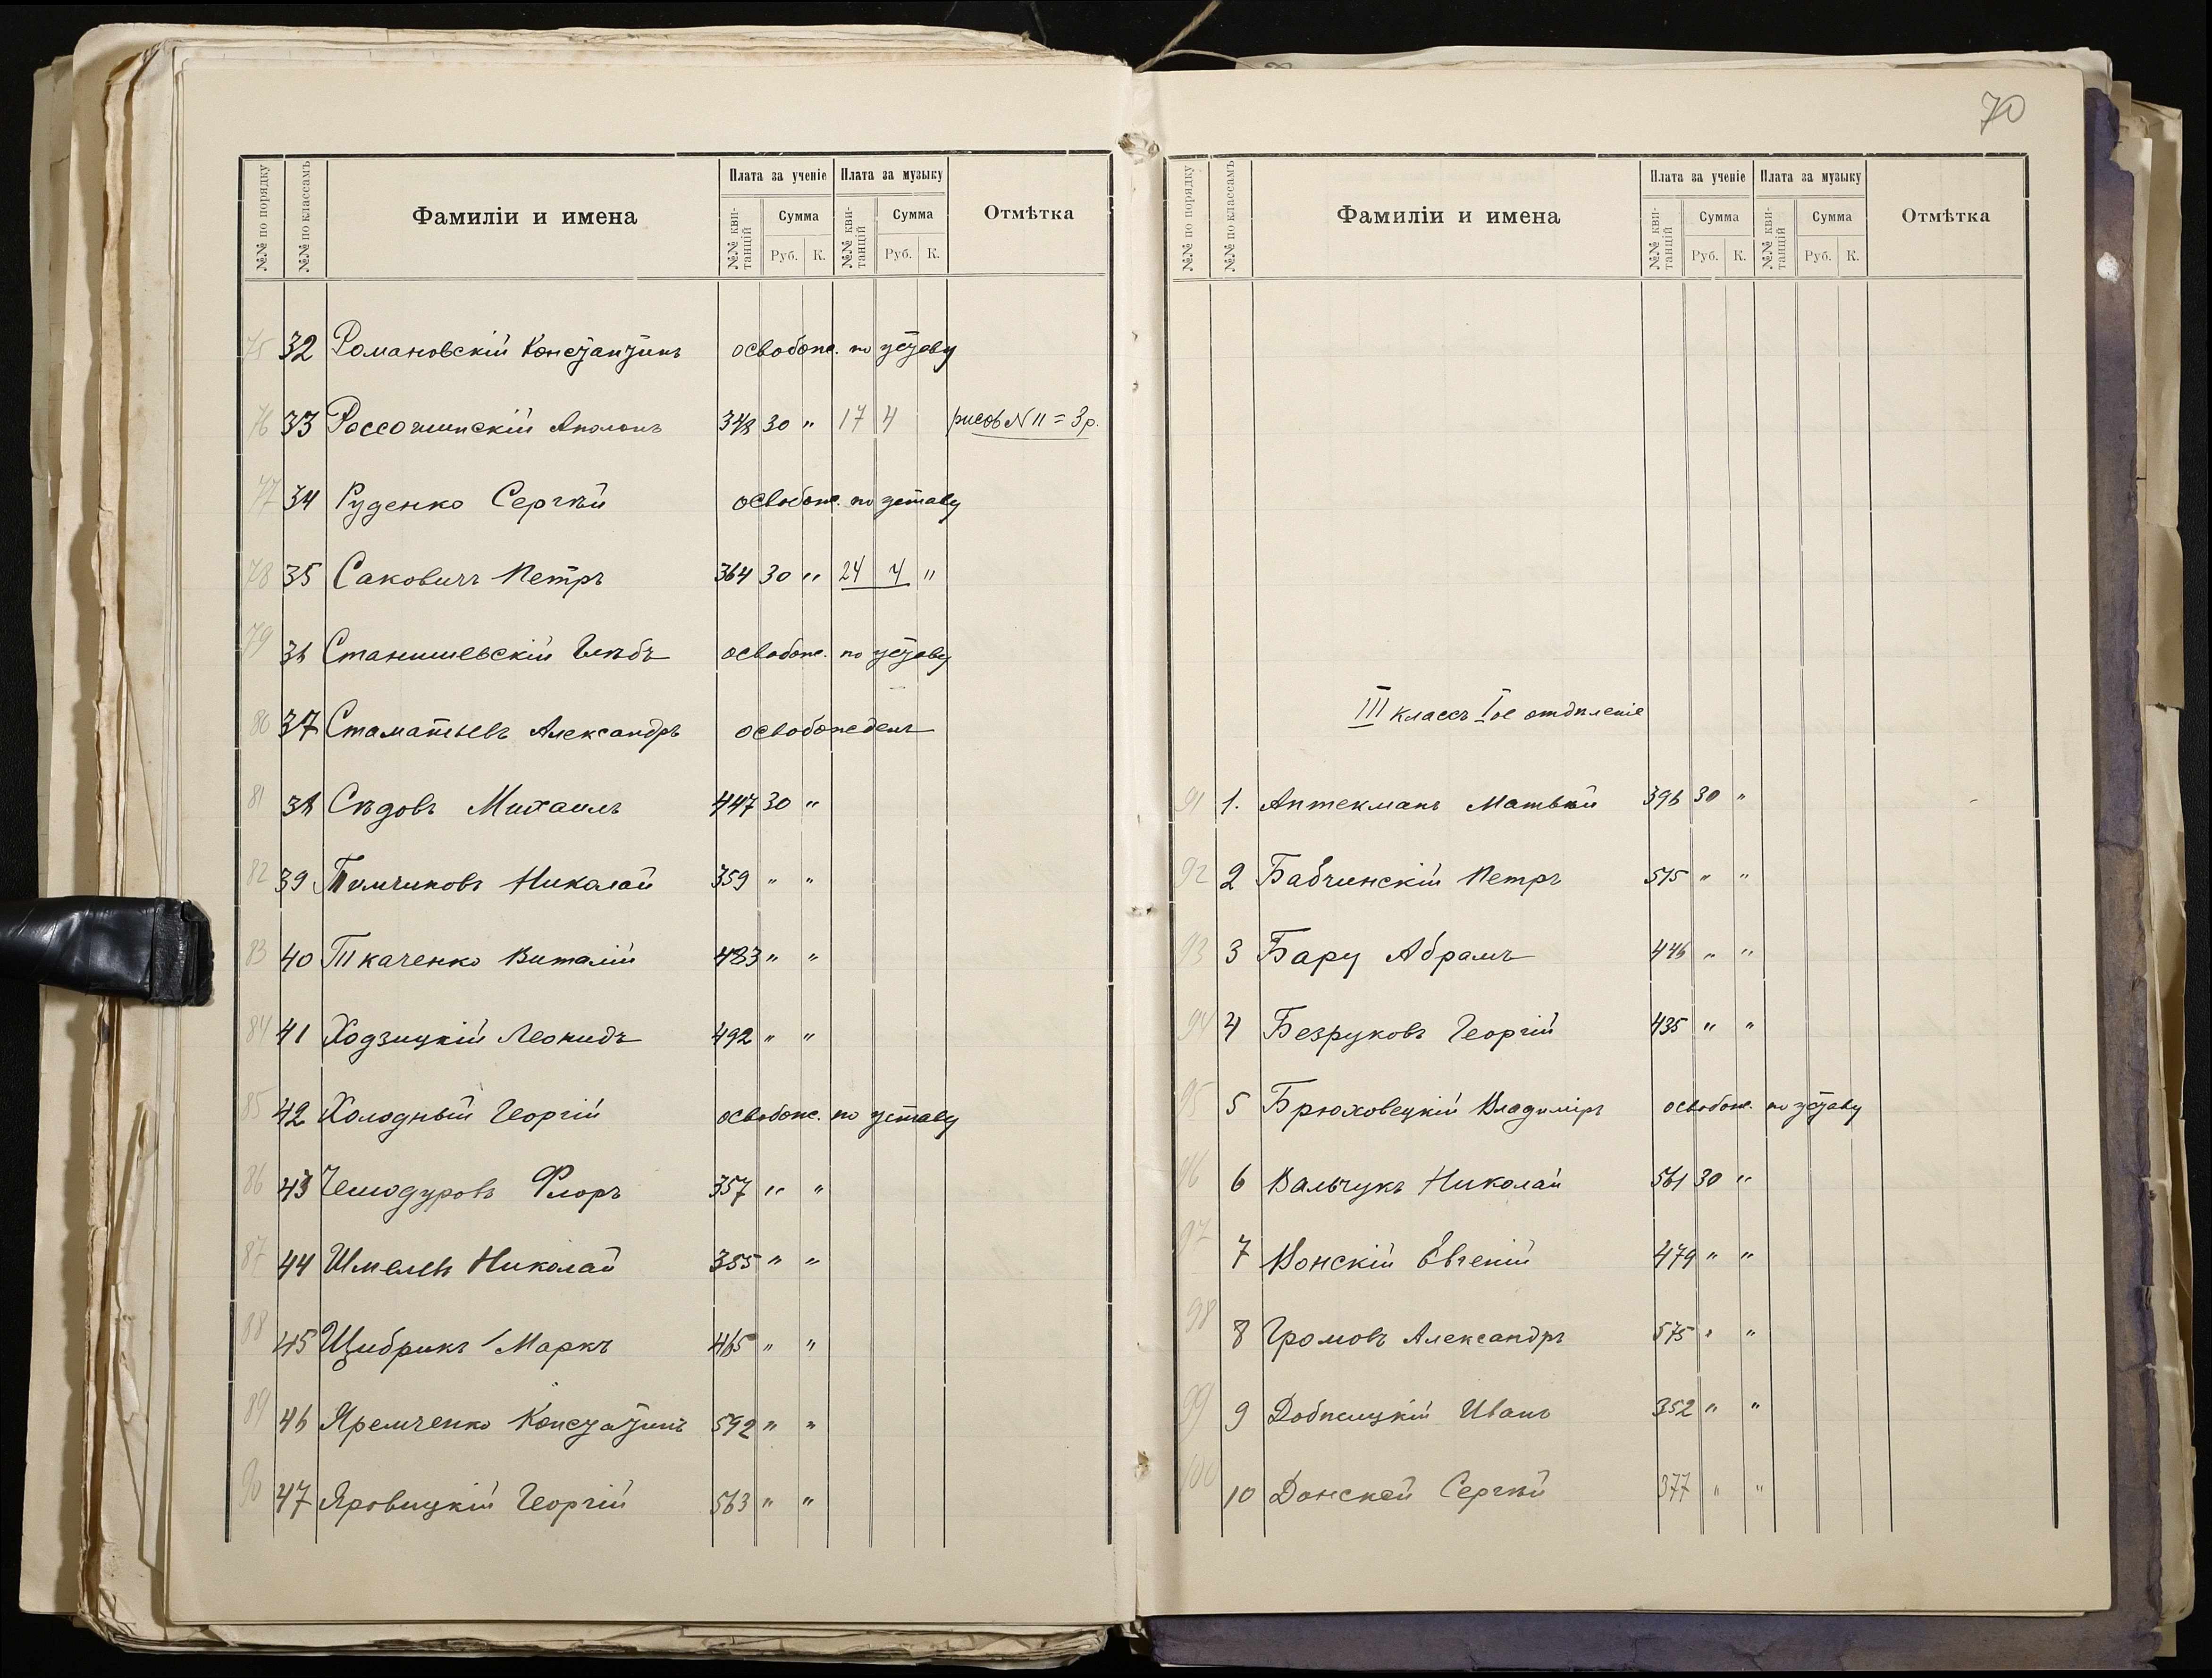 №№ по порядку №№ по классамъ Фамиліи и имена Плата за ученіе Плата за музыку Отмѣтка
№№ квитанцій Сумма №№ квитанцій Сумма
Руб. К. Руб. К.
75 32 Романовскій Константинъ освобожд. по уставу
76 33 Россочинскій Аполонъ 348 30 " 17 4 рисов №11 = 3 р.
77 34 Руденко Сергѣй освобожд. по уставу
78 35 Саковичъ Петръ 364 30 " 24 4 "
79 36 Станишевскій Глѣбъ освобожд. по уставу
80 37 Стаматьевъ Александръ освобожденъ
81 38 Сѣдовъ Михаилъ 447 30 "
82 39 Тимчиковъ Николай 359 " "
83 40 Ткаченко Виталій 483 " "
84 41 Ходзицкій Леонидъ 492 " "
85 42 Холодный Георгій освобожд. по уставу
86 43 Чемодуровъ Флоръ 357 " "
87 44 Шмелевъ Николай 355 " "
88 45 Щибрикъ Маркъ 465 " "
89 46 Яремченко Константинъ 592 " "
90 47 Яровицкій Георгій 563 " "
70
№№ по порядку №№ по классамъ Фамиліи и имена Плата за ученіе Плата за музыку Отмѣтка
№№ квитанцій Сумма №№ квитанцій Сумма
Руб. К. Руб. К.
III классъ I ое отдѣленіе
91 1. Аптекманъ Матвѣй 396 30 "
92 2 Бабчинскій Петръ 515 " "
93 3 Бару Абрамъ 446 " "
94 4 Безруковъ Георгій 435 " "
95 5 Брюховецкій Владиміръ освобожд. по уставу
96 6 Вальчукъ Николай 561 30 "
97 7 Вонскій Евгеній 479 " "
98 8 Громовъ Александръ 575 " "
99 9 Добѣлицкій Иванъ 352 " "
100 10 Донской Сергѣй 377 " "